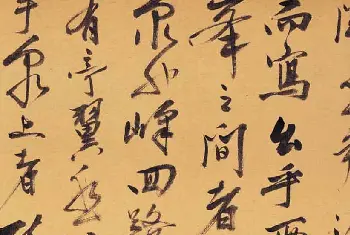 而寫出乎
峯之間者
泉也峰回路
有亭翼然
泉上者